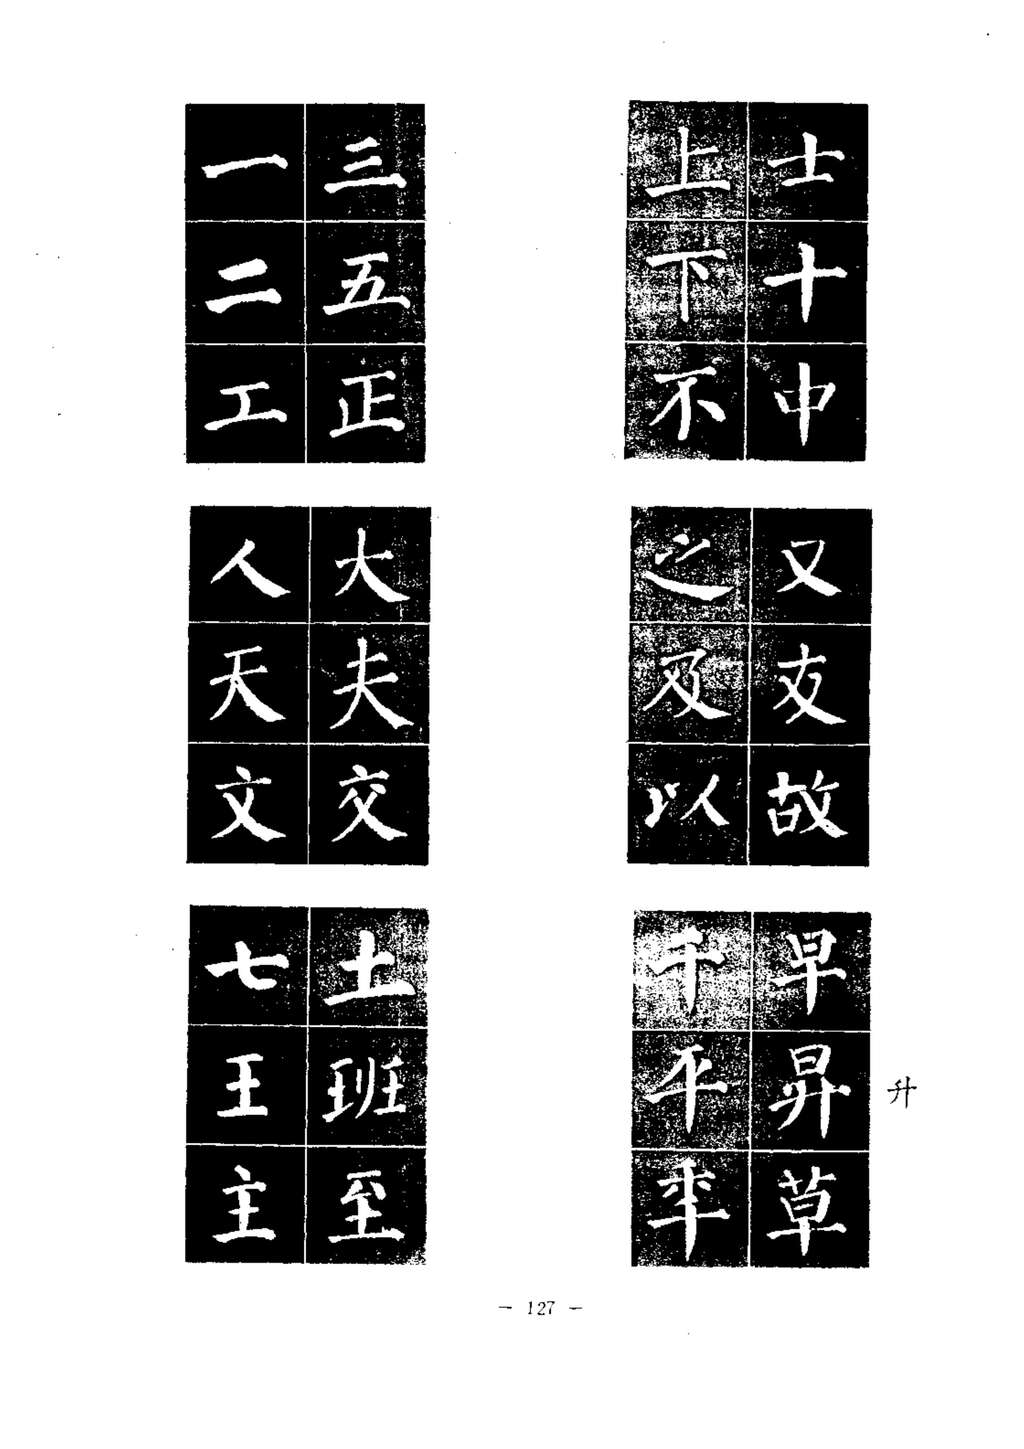 一 三
二 五
工 正
上 士
下 十
不 中
人 大
天 夫
文 交
之 又
及 友
以 故
七 土
王 班
主 至
千 早
平 昇 升
率 草
- 127 -